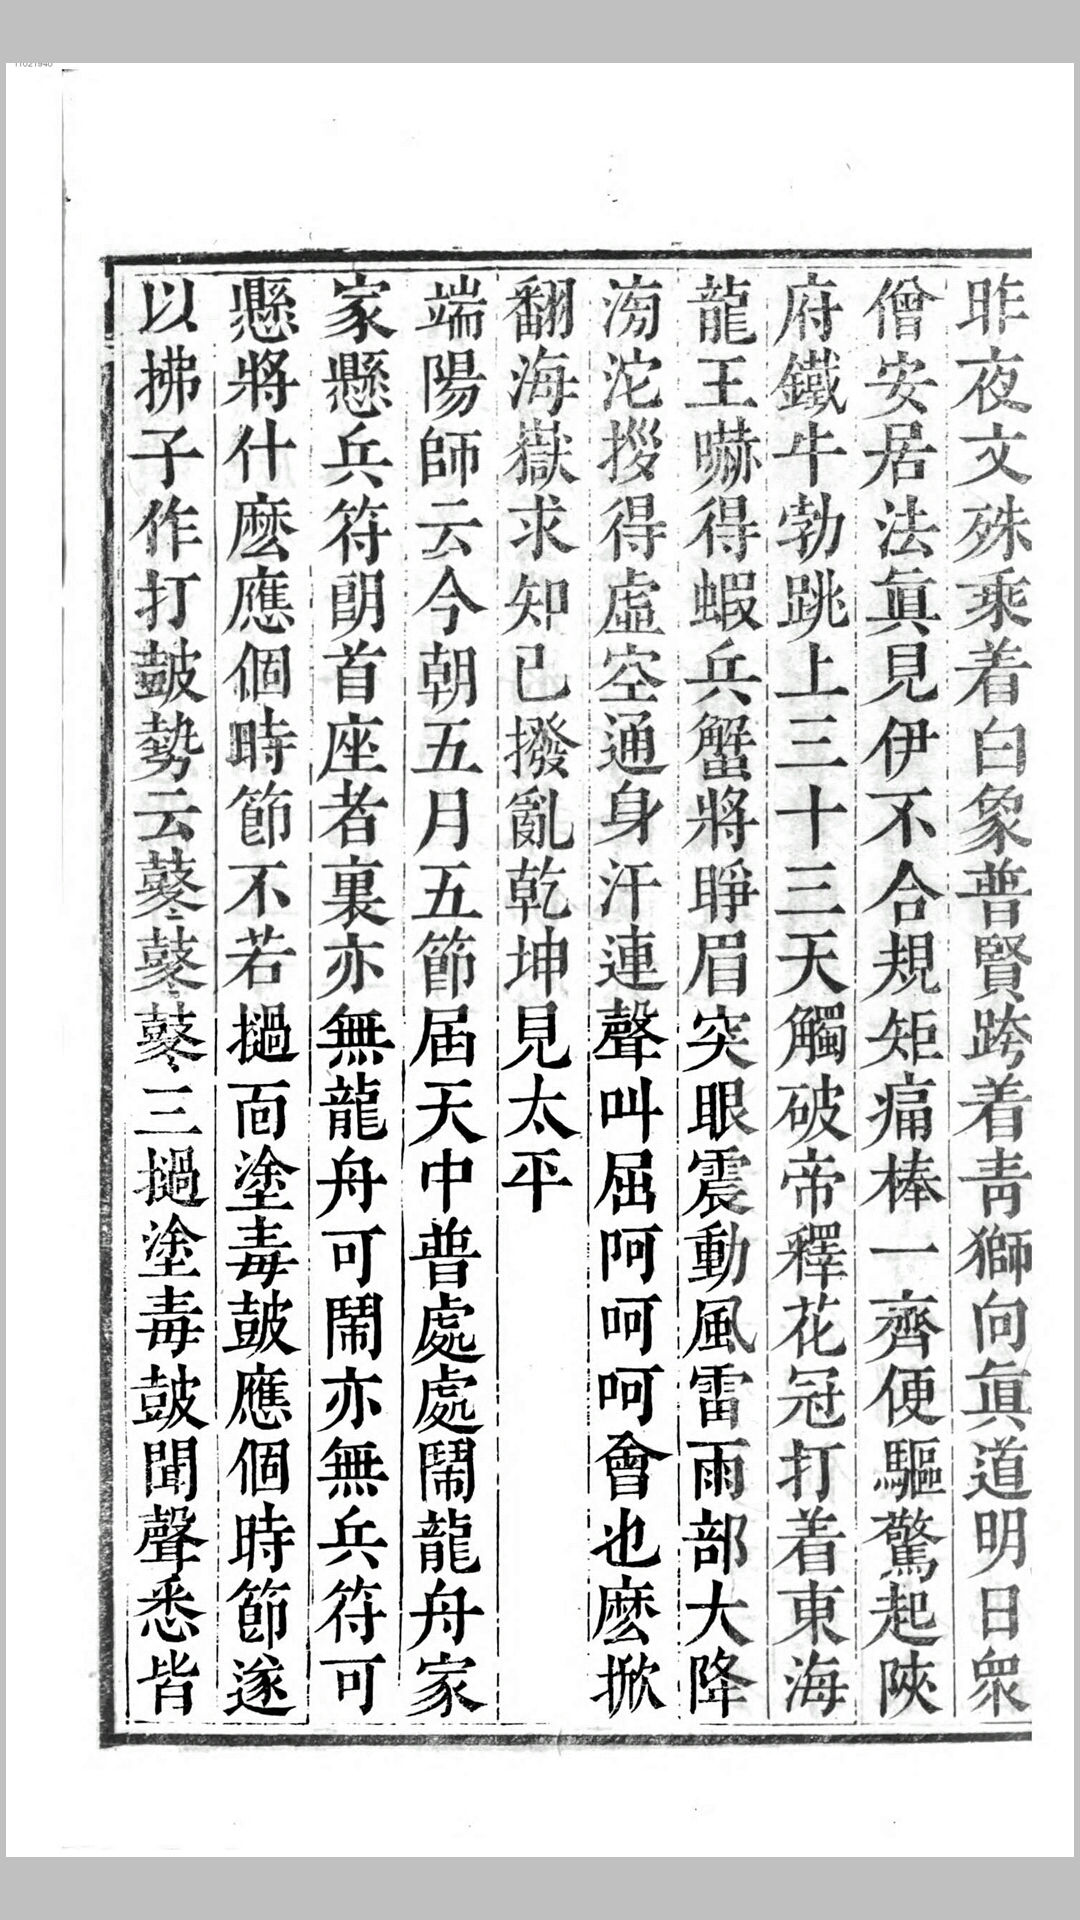 11021940
昨夜文殊乘着白象普賢跨着靑獅向眞道明日衆
僧安居法眞見伊不合規矩痛棒一齊便驅驚起陝
府鐵牛勃跳上三十三天觸破帝釋花冠打着東海
龍王嚇得蝦兵蟹將睜眉突眼震動風雷雨部大降
滂沱拶得虛空通身汗連聲叫屈呵呵呵會也麽掀
翻海嶽求知己撥亂乾坤見太平
端陽師云今朝五月五節届天中普處處鬧龍舟家
家懸兵符朗首座者裏亦無龍舟可鬧亦無兵符可
懸將什麽應個時節不若撾面塗毒皷應個時節遂
以拂子作打皷勢云鼕鼕鼕三撾塗毒皷聞聲悉皆